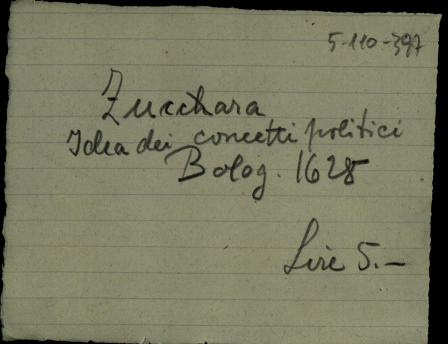 5-110-397
Zucchara
Idea dei concetti politici
Bolog. 1628
Lire 5.—